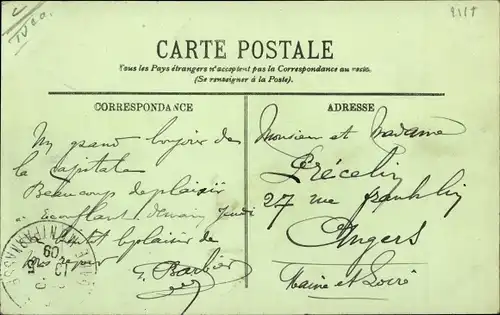 CARTE POSTALE
Tous les Pays étrangers n'acceptent pas la Correspondance au recto.
(Se renseigner à la Poste).
CORRESPONDANCE
Un grand bonjour de
la capitale
Beaucoup de plaisir
a Ecouflant demain jeudi
le plaisir de
G. Barbier
ADRESSE
Monsieur et Madame
Précelin
27 rue franklin
Angers
Maine et Loire